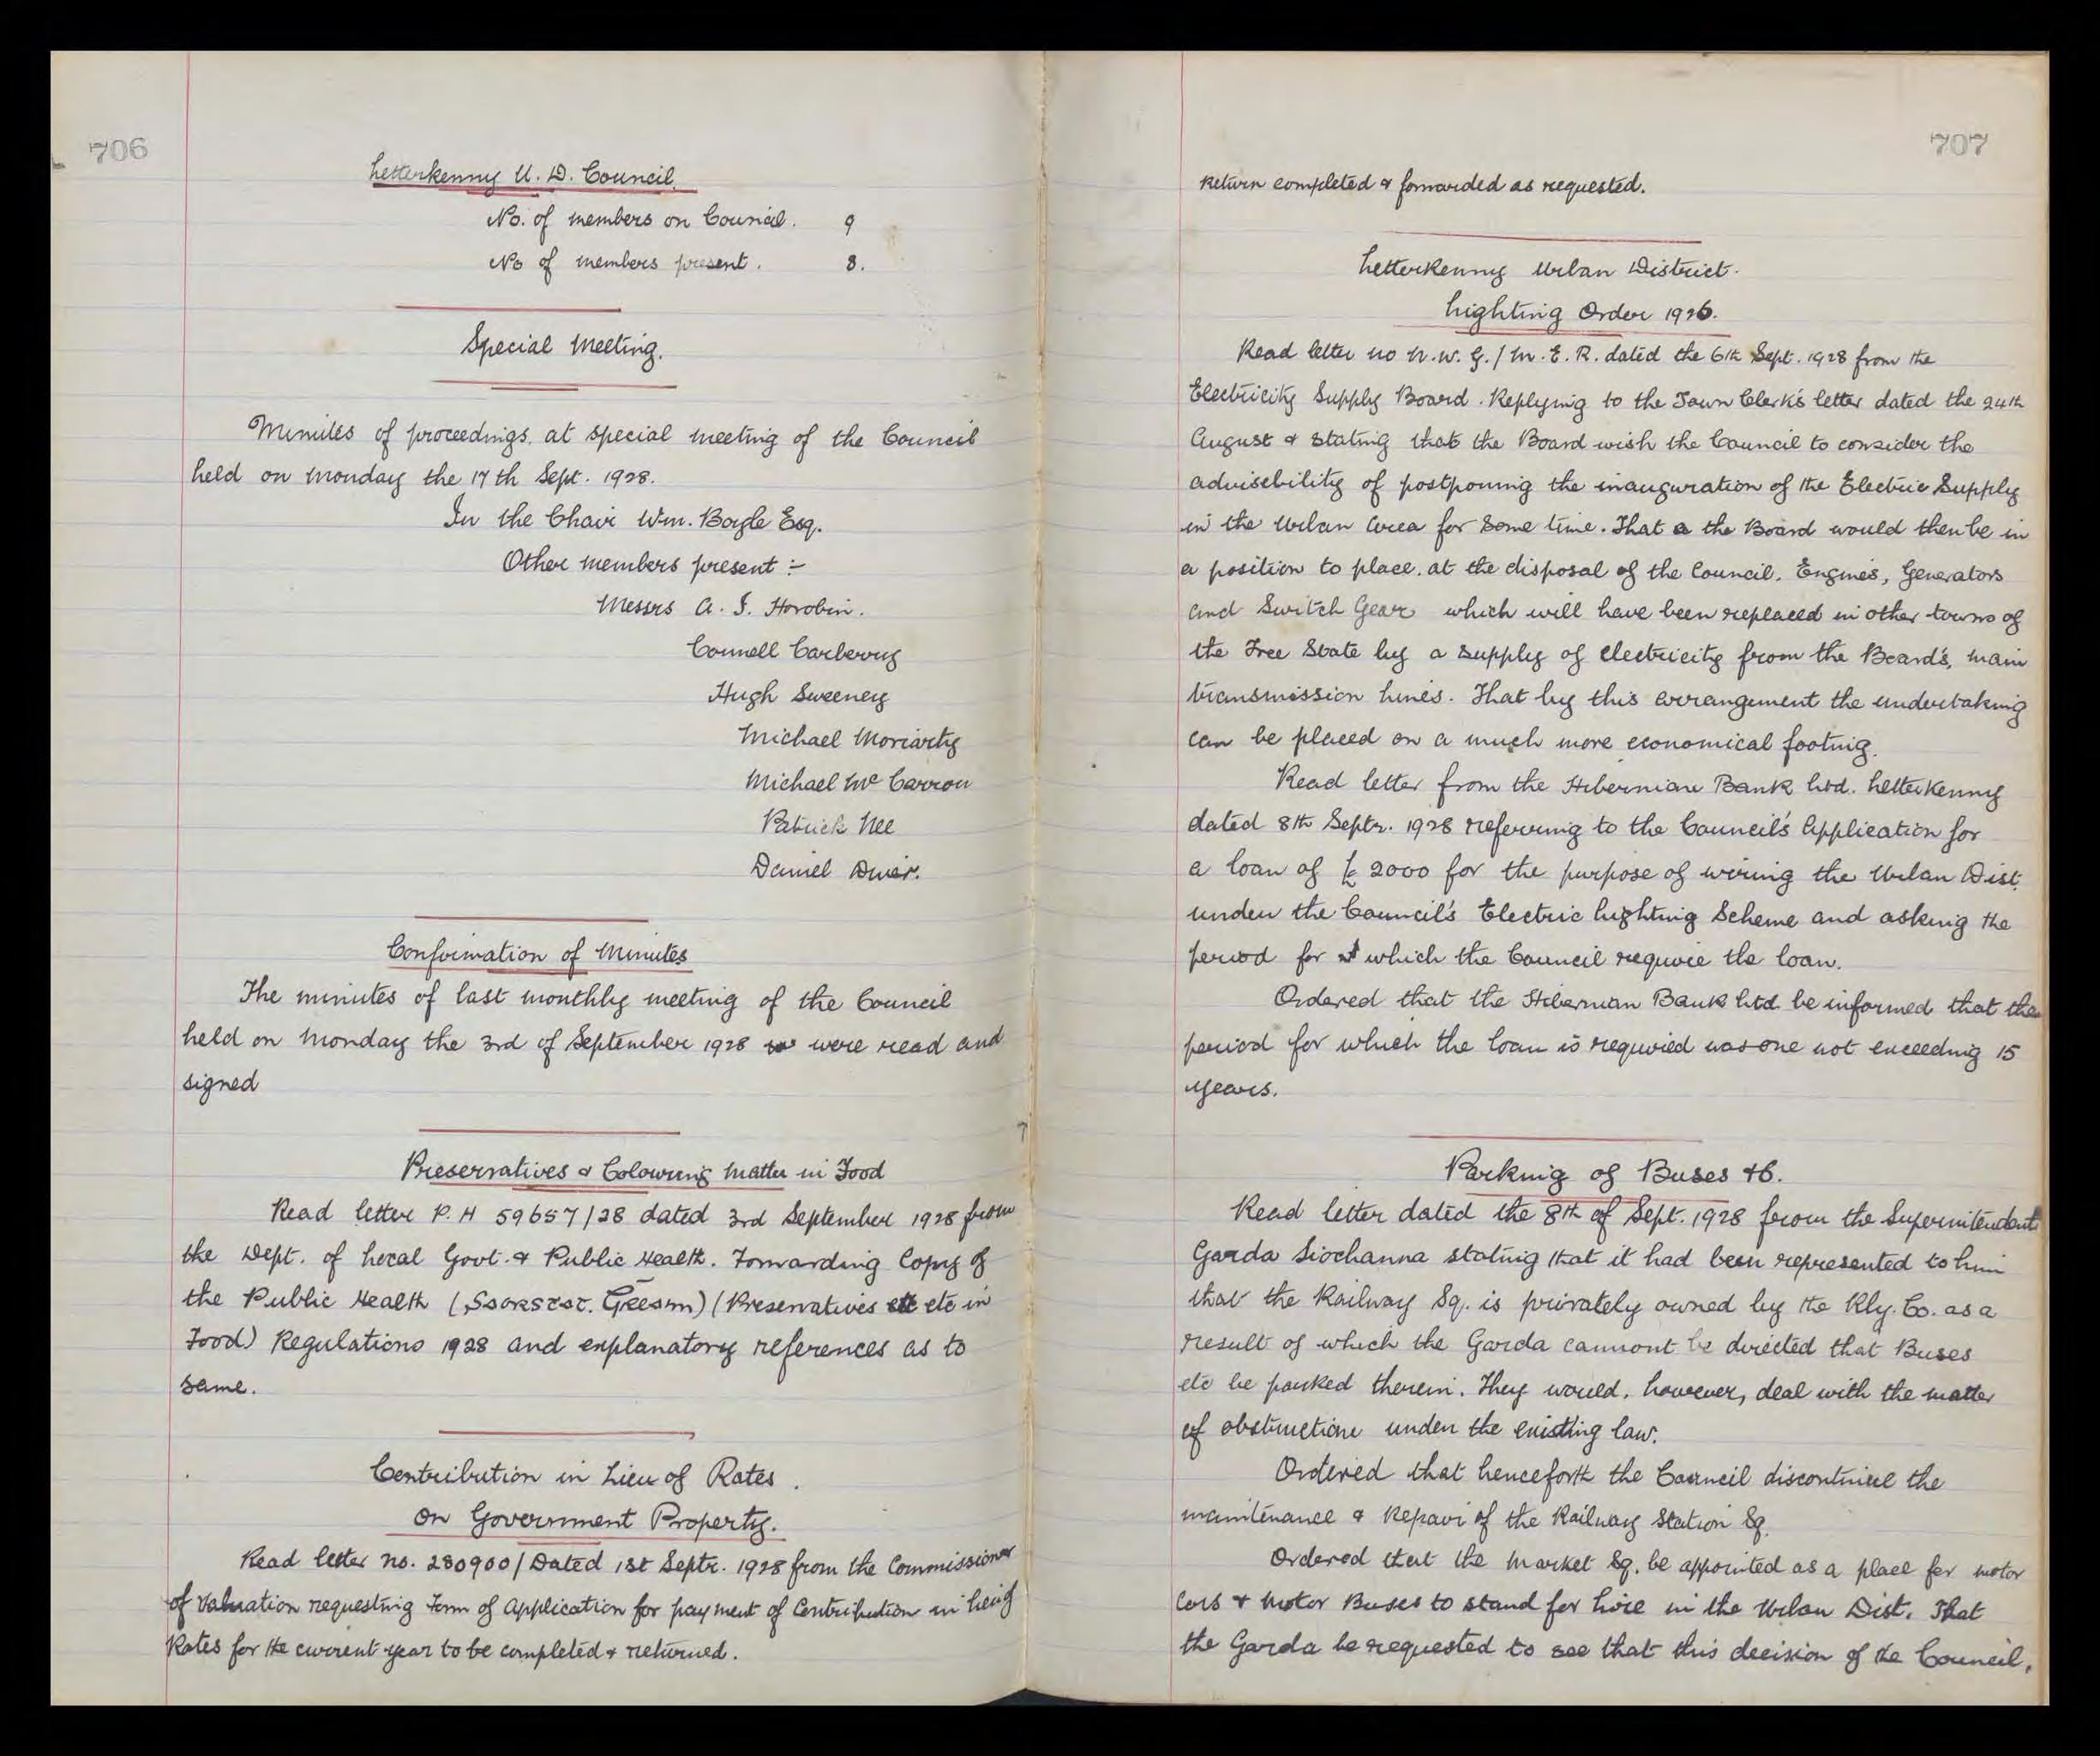 706
Letterkenny U. D. Council.
No. of members on Council. 9
No of members present. 8.
Special Meeting.
Minutes of proceedings. at special meeting of the Council
held on Monday the 17th Sept. 1928.
In the Chair Wm. Boyle Esq.
Other members present :-
Messrs A. I. Horobin.
Connell Carberry
Hugh Sweeney
Michael Moriarty
Michael Mc Carron
Patrick Nee
Daniel Diver.
Confirmation of Minutes
The minutes of last monthly meeting of the Council
held on Monday the 3rd of September 1928 were read and
signed
Preservatives & Colouring Matter in Food
Read letter P. H 59657/28 dated 3rd September 1928 from
the Dept. of Local Govt. & Public Health. Forwarding Copy of
the Public Health (Saorstat. Éireann) (Preservatives etc in
Food) Regulations 1928 and explanatory references as to
same.
Contribution in Lieu of Rates.
on Government Property.
Read letter no. 280900/Dated 1st Septr. 1928 from the Commissioner
of Valuation requesting Form of Application for payment of Contribution in lieu of
Rates for the current year to be completed & returned.
707
Return completed & forwarded as requested.
Letterkenny Urban District.
Lighting Order 1926.
Read letter no N.W.G./M.E.R. dated the 6th Sept. 1928 from the
Electricity Supply Board. Replying to the Town Clerk's letter dated the 24th
August & stating that the Board wish the Council to consider the
advisebility of postponing the inauguration of the Electric Supply
in the Urban Area for some time. That the Board would then be in
a position to place. at the disposal of the Council. Engines, Generators
and Switch Gear which will have been replaced in other towns of
the Free State by a supply of electricity from the Board's, main
transmission lines. That by this arrangement the undertaking
can be placed on a much more economical footing.
Read letter from the Hibernian Bank Ltd. Letterkenny
dated 8th Septr. 1928 referring to the Council's Application for
a loan of £2000 for the purpose of wiring the Urban Dist.
under the Council's Electric Lighting Scheme and asking the
period for which the Council require the loan.
Ordered that the Hibernian Bank Ltd be informed that the
period for which the loan is required was one not exceeding 15
years.
Parking of Buses &c.
Read letter dated the 8th of Sept. 1928 from the Superintendent
Garda Siochanna stating that it had been represented to him
that the Railway Sq. is privately owned by the Rly. Co. as a
result of which the Garda cannont be directed that Buses
etc be parked therein. They would. however, deal with the matter
of obstruction under the existing law.
Ordered that henceforth the Council discontinue the
maintenance & Repair of the Railway Station Sq.
Ordered that the Market Sq. be appointed as a place for motor
Cars & Motor Buses to stand for hire in the Urban Dist. That
the Garda be requested to see that this decision of the Council.